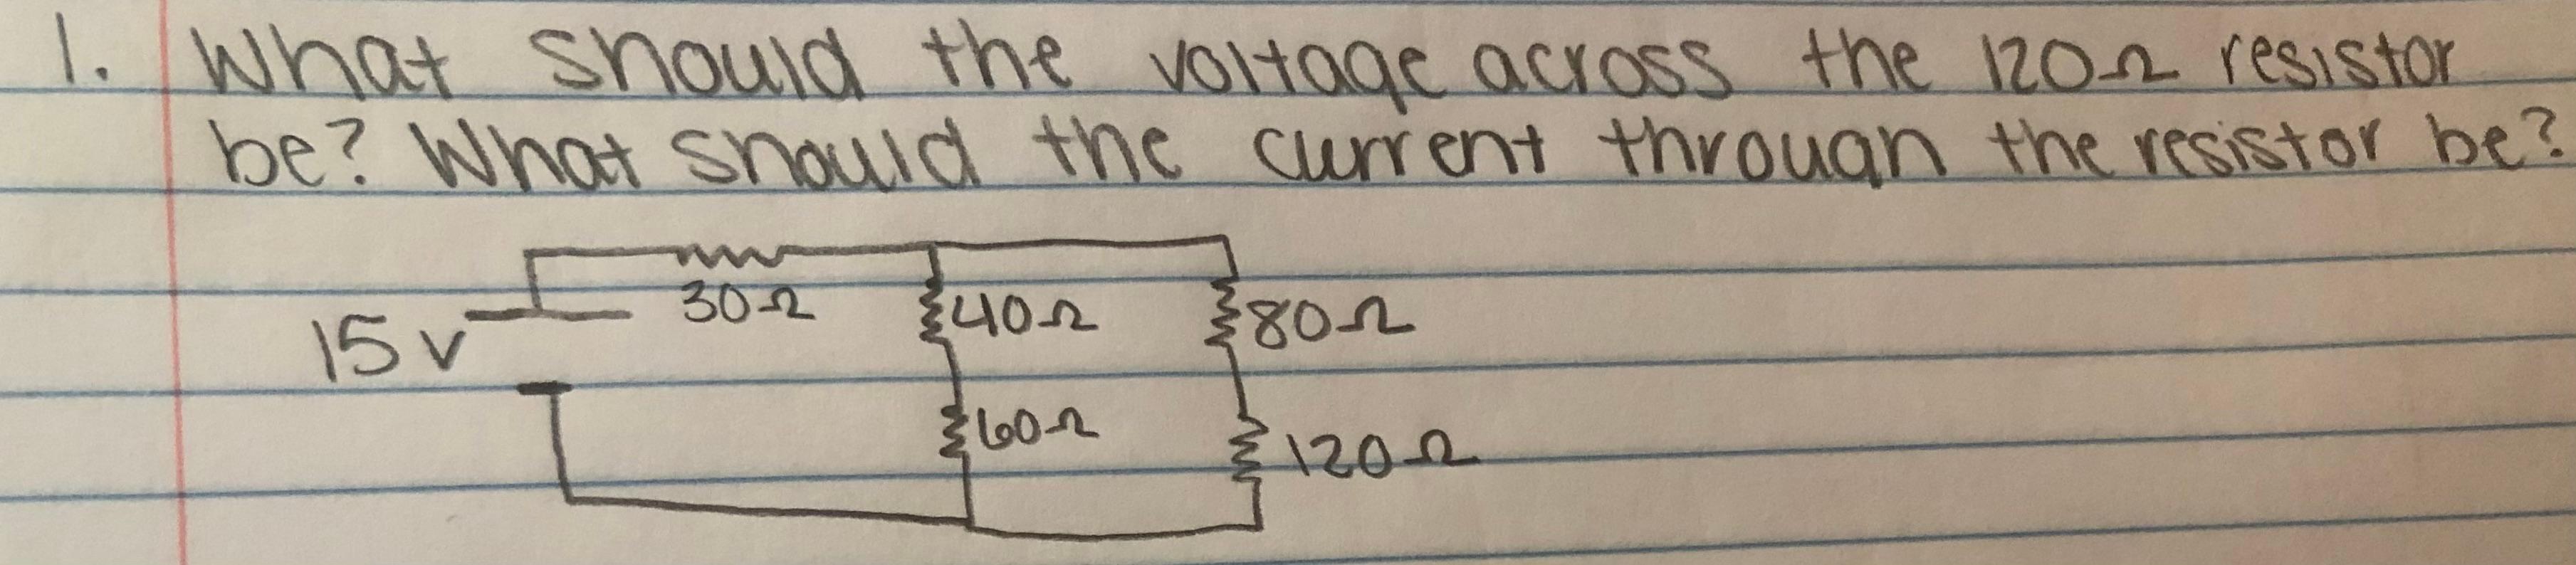 1. What should the voltage across the 120Ω resistor
be? What should the current through the resistor be?
30Ω
40Ω
80Ω
15 v
60Ω
120Ω